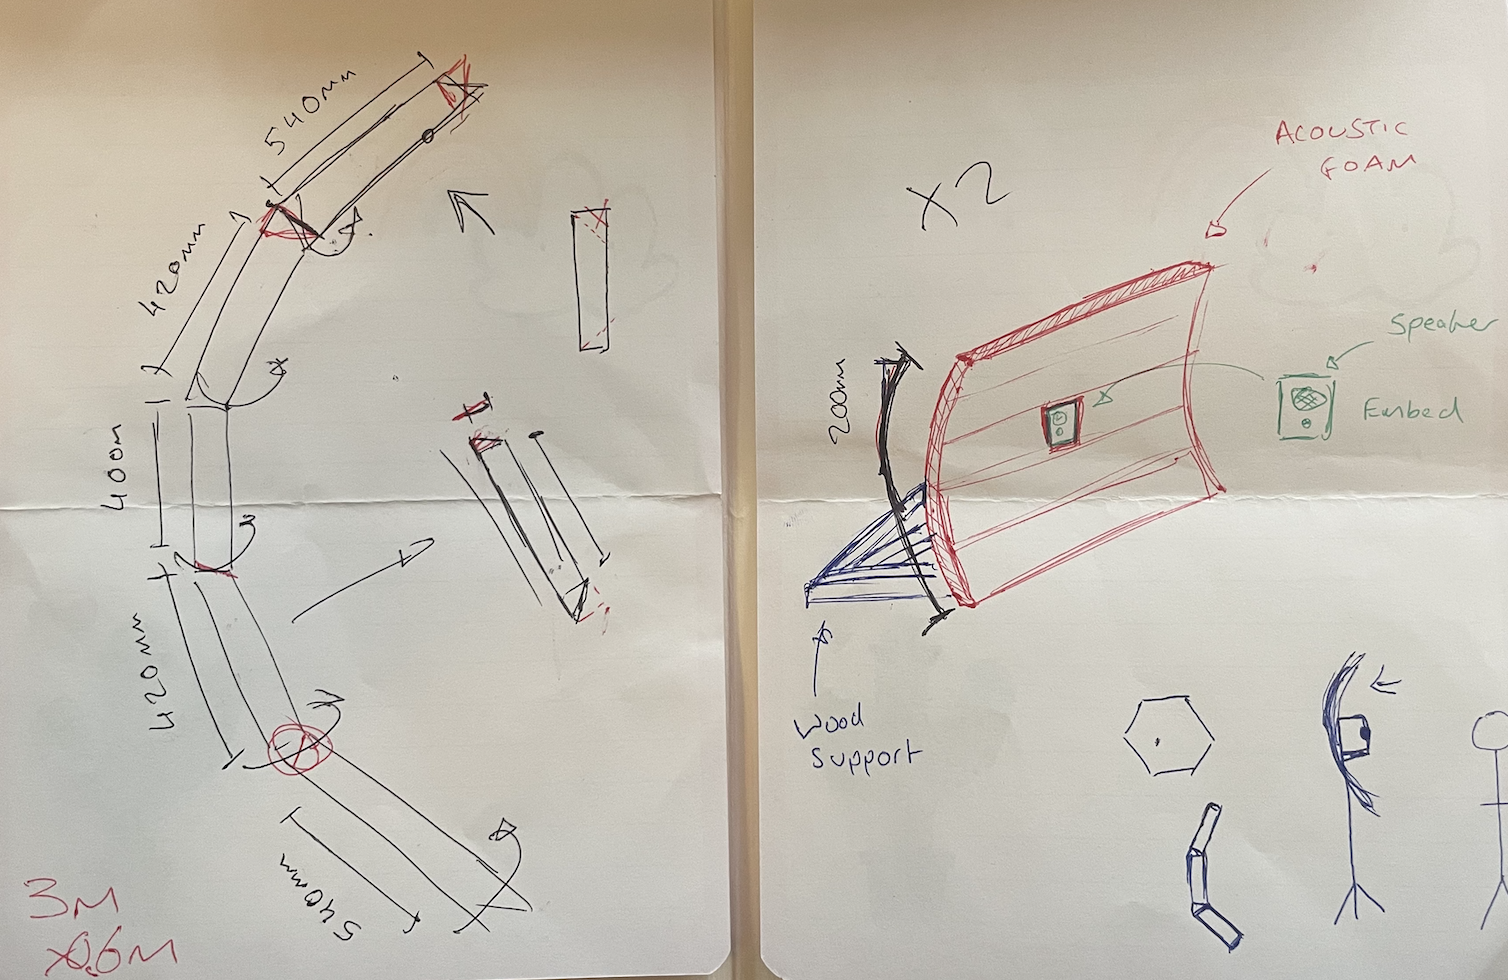 540mm
420mm
400m
420mm
540mm
3M
x0.6M
X2
ACOUSTIC
FOAM
Speaker
Embed
200mm
Wood
Support